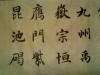 九州禹
嶽宗恒
鴈門紫
昆池碣